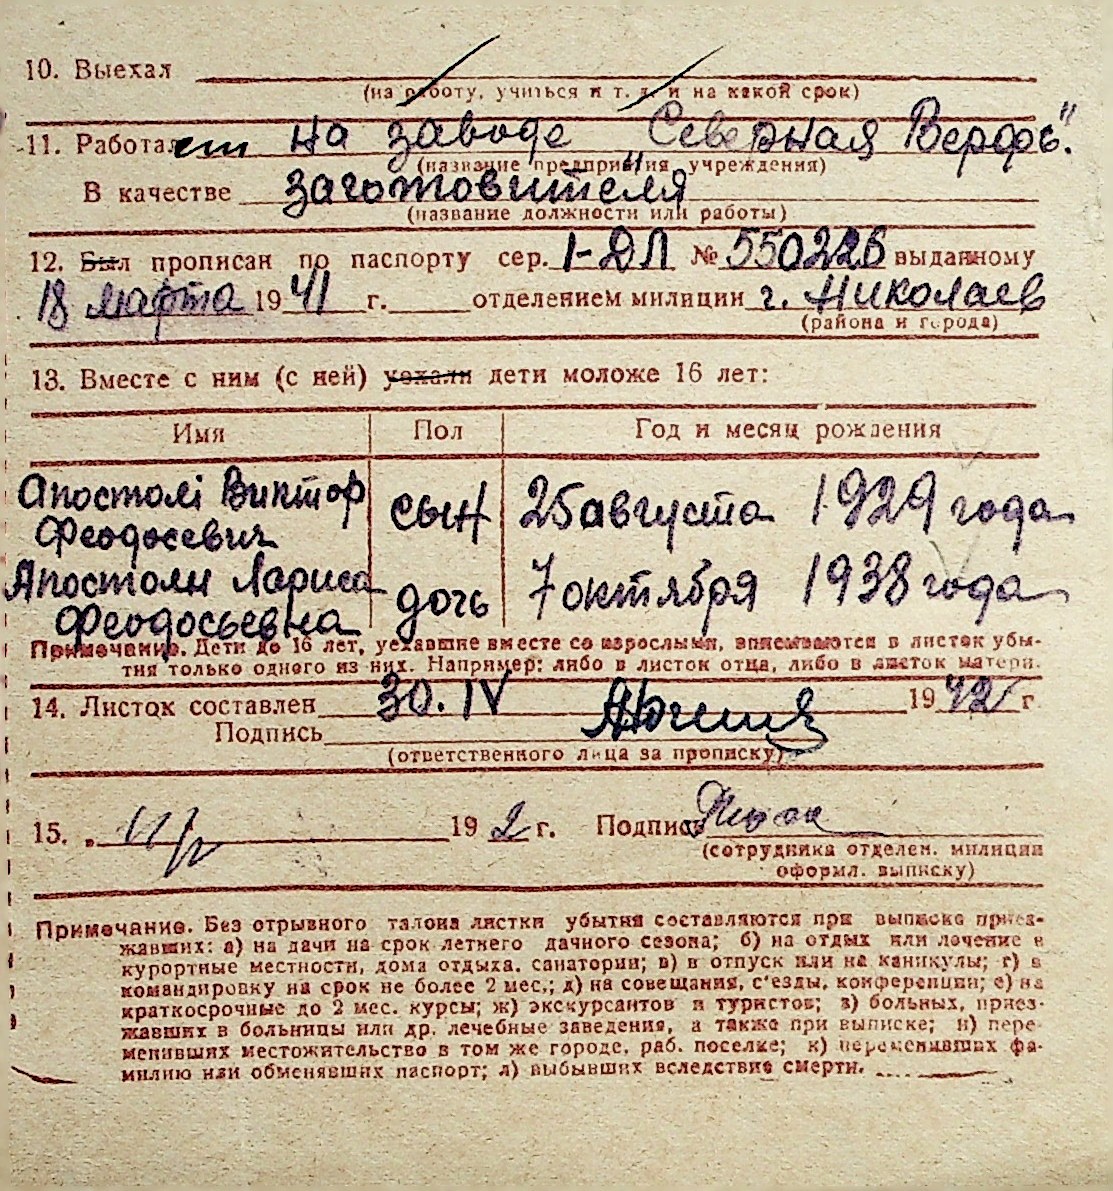 10. Выехал
(на работу, учиться и т. д. и на какой срок)
11. Работает на заводе "Северная Верфь".
(название предприятия учреждения)
В качестве заготовителя
(название должности или работы)
12. Был прописан по паспорту сер. I-ДЛ № 550226 выданному
18 марта 1941 г. отделением милиции г. Николаев
(района и города)
13. Вместе с ним (с ней) уехали дети моложе 16 лет:
Имя Пол Год и месяц рождения
Апостолі Виктор Феодосевич сын 25 августа 1929 года
Апостоли Лариса Феодосьевна дочь 7 октября 1938 года
Примечание. Дети до 16 лет, уехавшие вместе со взрослыми, вписываются в листок убы-
тия только одного из них. Например: либо в листок отца, либо в листок матери.
14. Листок составлен 30. IV 1942 г.
Подпись
(ответственного лица за прописку)
15. „ 19 2 г. Подпись
(сотрудника отделен. милиции
оформл. выписку)
Примечание. Без отрывного талона листки убытия составляются при выписке приез-
жавших: а) на дачи на срок летнего дачного сезона; б) на отдых или лечение в
курортные местности, дома отдыха, санатории; в) в отпуск или на каникулы; г) в
командировку на срок не более 2 мес.; д) на совещания, с'езды, конференции; е) на
краткосрочные до 2 мес. курсы; ж) экскурсантов и туристов; з) больных, приез-
жавших в больницы или др. лечебные заведения, а также при выписке; и) пере-
менивших местожительство в том же городе, раб. поселке; к) переменивших фа-
милию или обменявших паспорт; л) выбывших вследствие смерти.